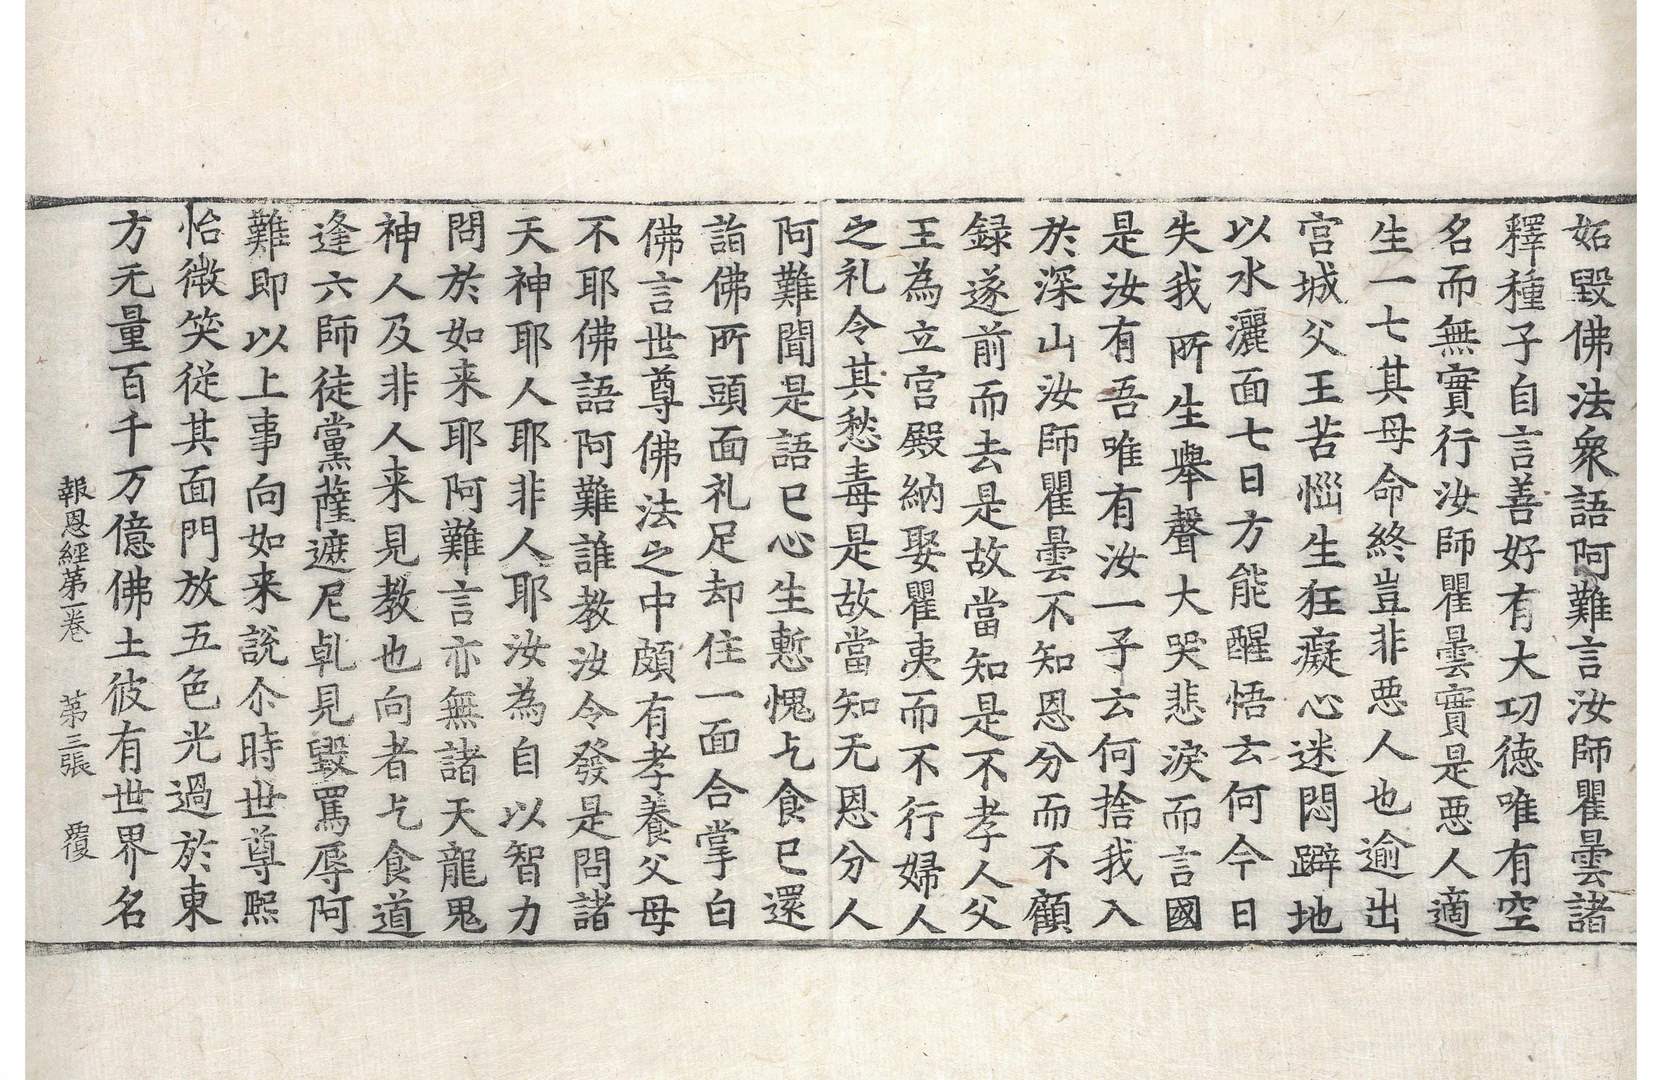 妬毀佛法衆語阿難言汝師瞿曇諸
釋種子自言善好有大功德唯有空
名而無實行汝師瞿曇實是惡人適
生一七其母命終豈非惡人也逾出
宮城父王苦惱生狂癡心迷悶躃地
以水灑面七日方能醒悟云何今日
失我所生舉聲大哭悲淚而言國
是汝有吾唯有汝一子云何捨我入
於深山汝師瞿曇不知恩分而不顧
録遂前而去是故當知是不孝人父
王為立宮殿納娶瞿夷而不行婦人
之礼令其愁毒是故當知无恩分人
阿難聞是語已心生慙愧乞食已還
詣佛所頭面礼足却住一面合掌白
佛言世尊佛法之中頗有孝養父母
不耶佛語阿難誰教汝令發是問諸
天神耶人耶非人耶汝為自以智力
問於如来耶阿難言亦無諸天龍鬼
神人及非人来見教也向者乞食道
逢六師徒黨薩遮尼乹見毀罵辱阿
難即以上事向如来說尒時世尊熈
怡微笑從其面門放五色光過於東
方无量百千万億佛土彼有世界名
報恩經第一卷 第三張 覆